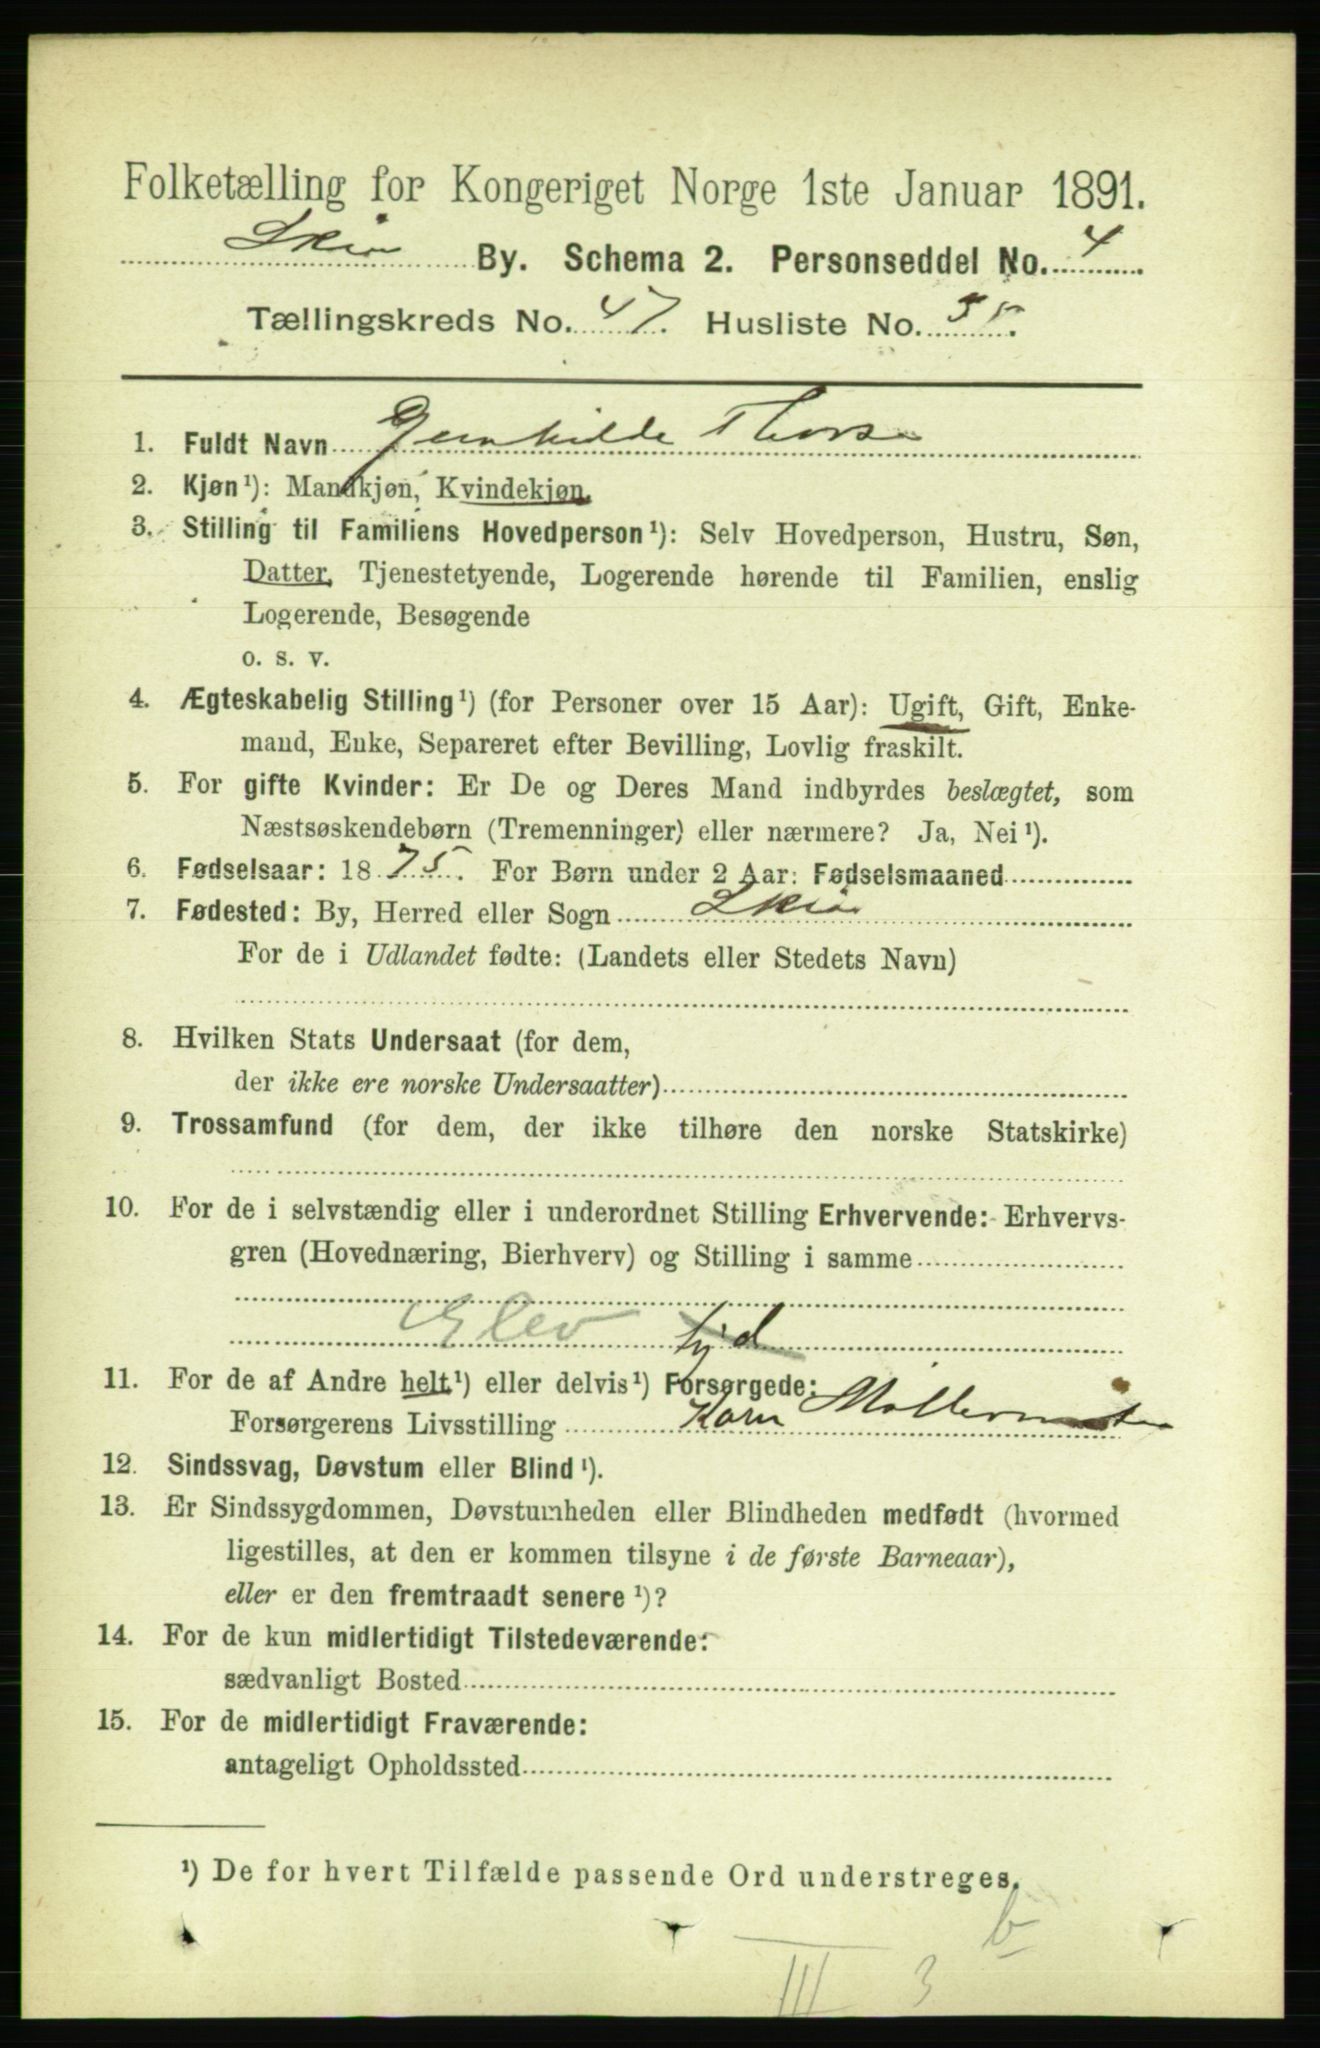 Folketælling for Kongeriget Norge 1ste Januar 1891.
Skien By. Schema 2. Personseddel No. 4
Tællingskreds No. 47. Husliste No. 35.
1. Fuldt Navn Gunhilde Thorsen
2. Kjøn¹): Mandkjøn, Kvindekjøn.
3. Stilling til Familiens Hovedperson¹): Selv Hovedperson, Hustru, Søn,
Datter, Tjenestetyende, Logerende hørende til Familien, enslig
Logerende, Besøgende
o. s. v.
4. Ægteskabelig Stilling¹) (for Personer over 15 Aar): Ugift, Gift, Enke-
mand, Enke, Separeret efter Bevilling, Lovlig fraskilt.
5. For gifte Kvinder: Er De og Deres Mand indbyrdes beslægtet, som
Næstsøskendebørn (Tremenninger) eller nærmere? Ja, Nei¹).
6. Fødselsaar: 1875. For Børn under 2 Aar: Fødselsmaaned
7. Fødested: By, Herred eller Sogn Skien
For de i Udlandet fødte: (Landets eller Stedets Navn)
8. Hvilken Stats Undersaat (for dem,
der ikke ere norske Undersaatter)
9. Trossamfund (for dem, der ikke tilhøre den norske Statskirke)
10. For de i selvstændig eller i underordnet Stilling Erhvervende: Erhvervs-
gren (Hovednæring, Bierhverv) og Stilling i samme
Elev
11. For de af Andre helt¹) eller delvis¹) Forsørgede:
Forsørgerens Livsstilling Korn Møllermester
12. Sindssvag, Døvstum eller Blind¹).
13. Er Sindssygdommen, Døvstumheden eller Blindheden medfødt (hvormed
ligestilles, at den er kommen tilsyne i de første Barneaar),
eller er den fremtraadt senere¹)?
14. For de kun midlertidigt Tilstedeværende:
sædvanligt Bosted
15. For de midlertidigt Fraværende:
antageligt Opholdssted
¹) De for hvert Tilfælde passende Ord understreges.
b
III 3